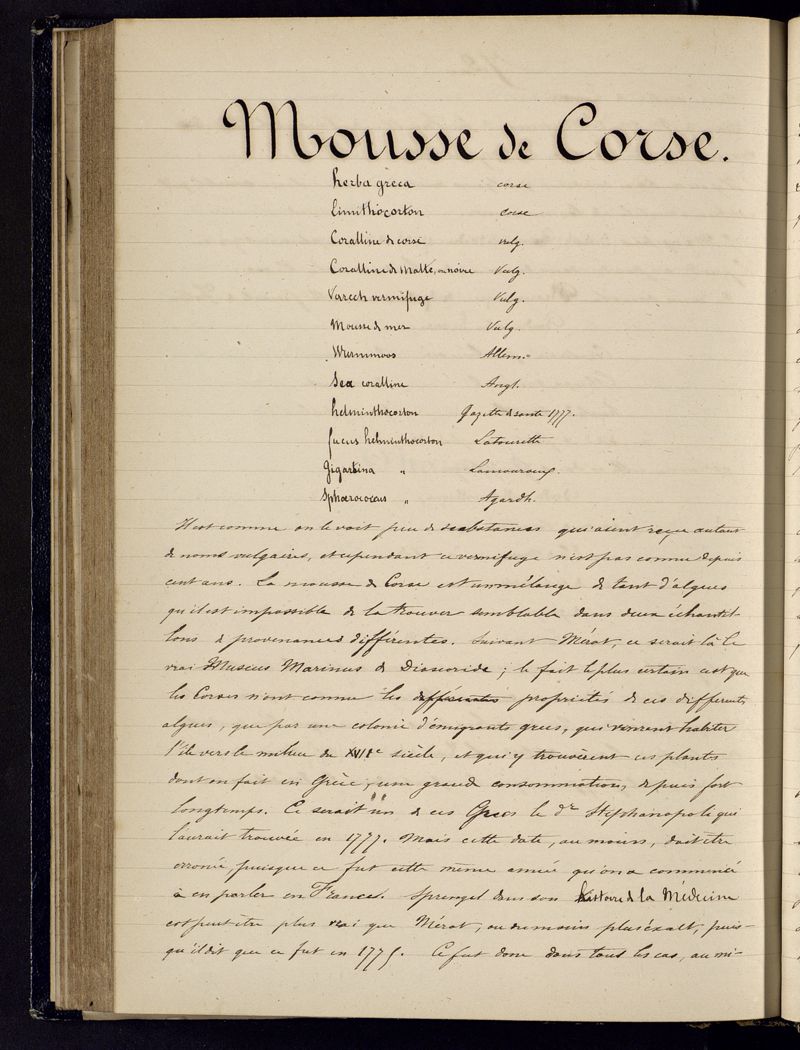 Mousse de Corse.
herba greca corse
Limithocorton corse
Coralline de corse vulg.
Coralline de Malte, ou noire Vulg.
Varech vermifuge Vulg.
Mousse de mer Vulg.
Wurmmoos Allem.
Sea coralline Angl.
helminthocorton Gazette de santé 1777.
fucus helminthocorton Latourette
Gigartina " Lamouroux.
Sphoerococcus " Agardh.
Il est comme on le voit peu de substances qui aient reçu autant
de noms vulgaires, et cependant ce vermifuge n'est pas connu depuis
cent ans. La mousse de Corse est un mélange de tant d'algues
qu'il est impossible de la trouver semblable dans deux échantil-
lons de provenances différentes. Suivant Mérat, ce serait là le
vrai Muscus Marinus de Dioscoride ; le fait le plus certain est que
les Corses n'ont connu les différentes propriétés de ces différentes
algues, que par une colonie d'émigrants grecs, qui vinrent habiter
l'île vers le milieu du XVIIe siècle, et qui y trouvèrent ces plantes
dont on fait en Grèce, une grande consommation, depuis fort
longtemps. Ce serait un de ces Grecs le dr Stephanopoli qui
l'aurait trouvée en 1777. Mais cette date, au moins, doit être
erronée puisque ce fut cette même année qu'on a commencé
à en parler en France. Sprengel dans son histoire de la Médecine
est peut être plus vrai que Mérat, ou du moins plus éxact, puis-
qu'il dit que ce fut en 1775. Ce fut donc dans tous les cas, au mi-